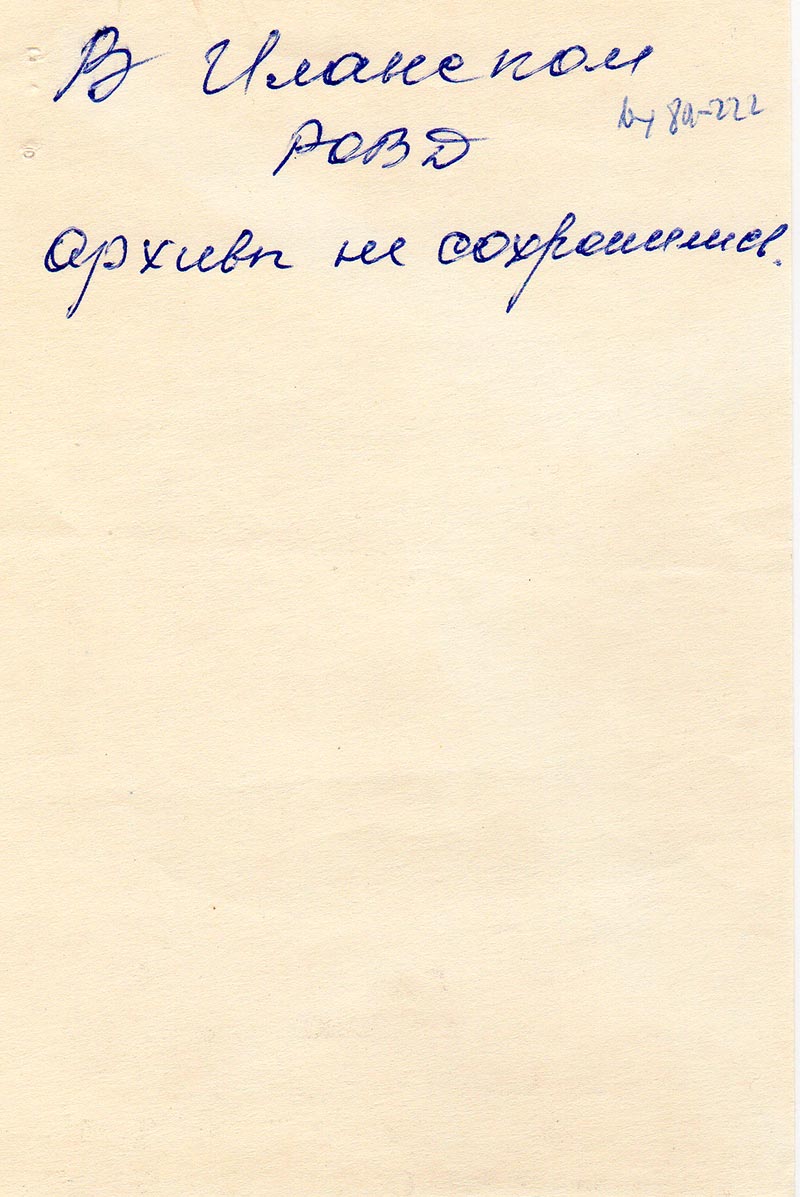 В Иланском
РОВД
архивы не сохранились.